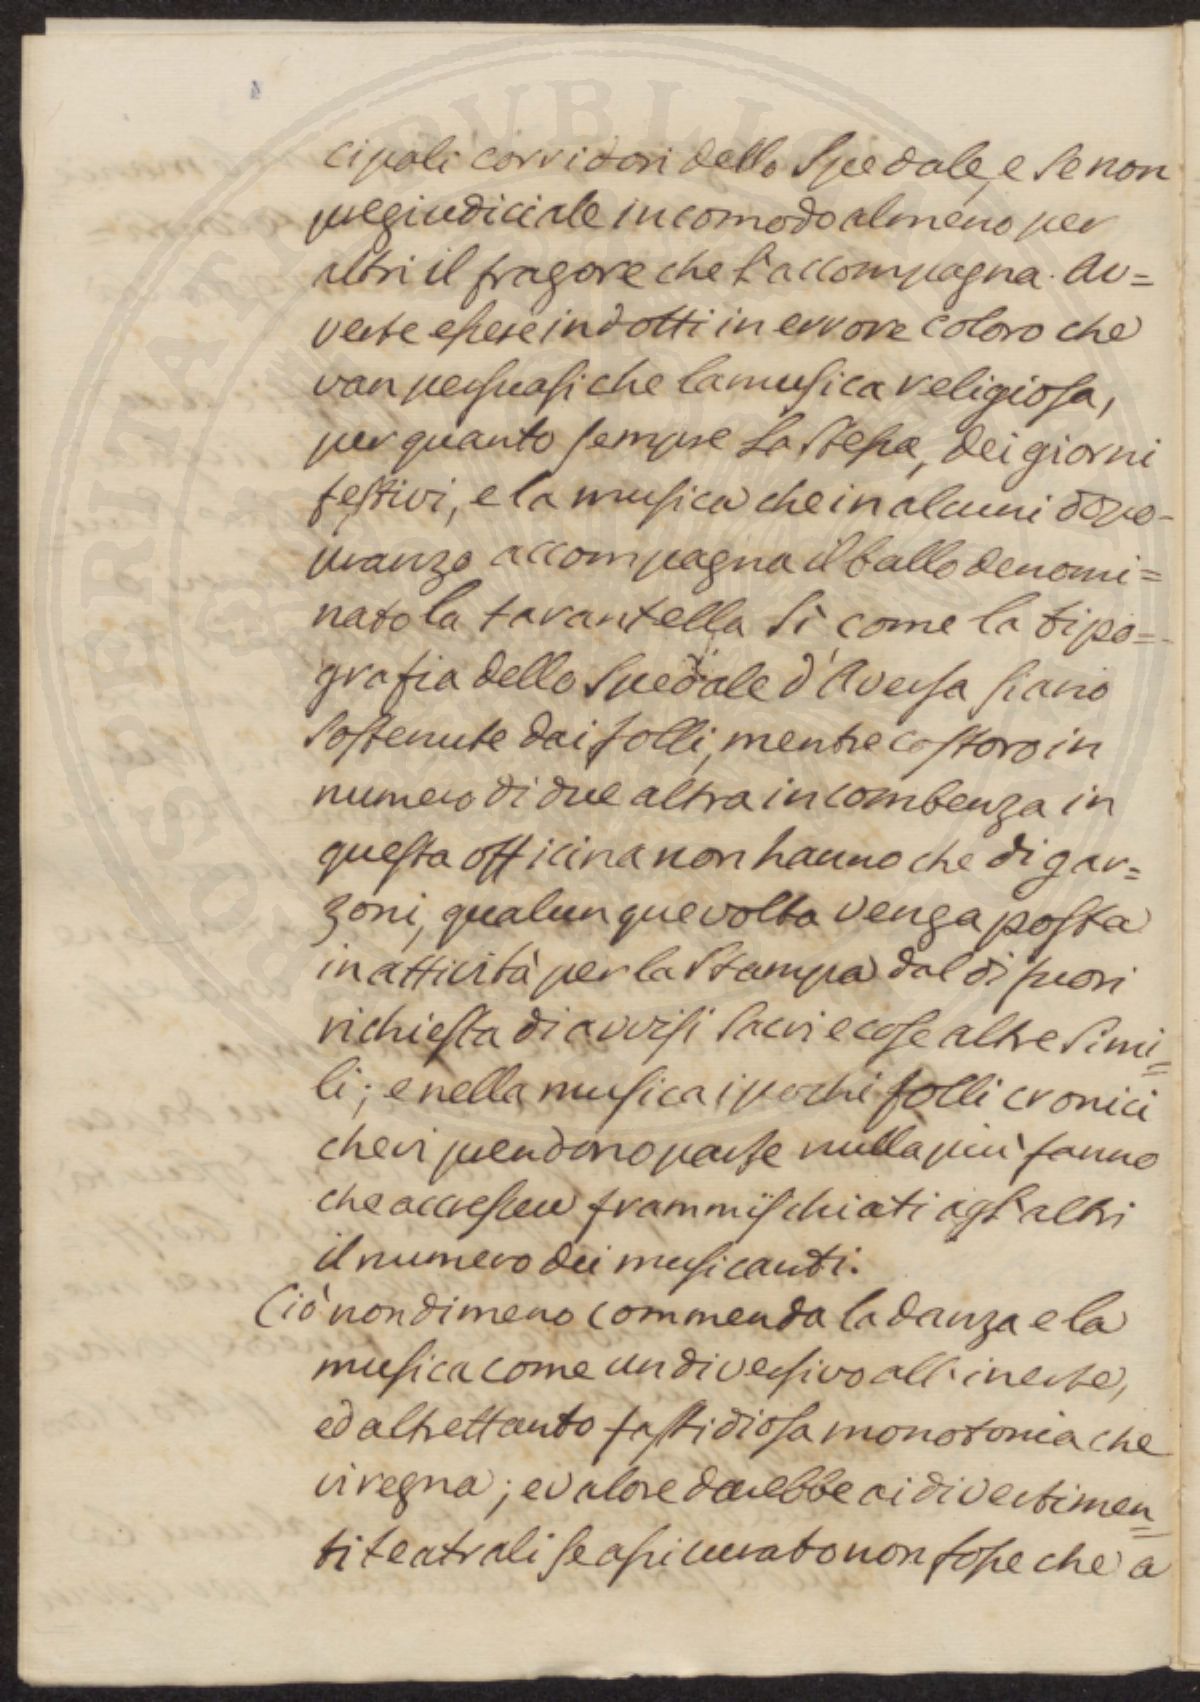 cipali corridori dello Spedale, e se non
pregiudiciale incomodo almeno per
altri il fragore che l'accompagna. Av=
verte essere indotti in errore coloro che
van persuasi che la musica religiosa,
per quanto sempre la stessa, dei giorni
festivi, e la musica che in alcuni dopo-
pranzo accompagna il ballo denomi=
nato la tarantella sì come la tipo=
grafia dello Spedale d'Aversa siano
sostenute dai folli, mentre costoro in
numero di due altra incombenza in
questa officina non hanno che di gar=
zoni, qualunque volta venga posta
in attività per la stampa dal di fuori
richiesta di avvisi sacri e cose altre simi=
li; e nella musica i pochi folli cronici
che vi prendono parte nulla più fanno
che accrescere frammischiati agl'altri
il numero dei musicanti.
Ciò non di meno commenda la danza e la
musica come un diversivo all'inerte,
ed altrettanto fastidiosa monotonia che
vi regna; e valore darebbe ai divertimen=
ti teatrali se assicurato non fosse che a
PROSPERITATI PUBLICAE